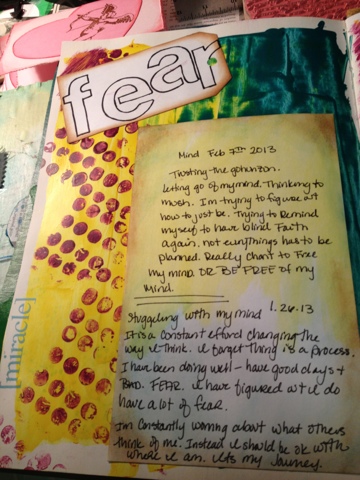 fear
Mind Feb 7th 2013
Trusting the gohonzon.
letting go of my mind. Thinking to
much. I'm trying to figure out
how to just be. Trying to Remind
myself to have blind Faith
again. not everythings has to be
planned. Really Chant to Free
my mind. OR BE FREE of my
Mind.
1.26.13
Struggling with my mind
It is a constant effort changing the
way I think. I forget Thing is a process.
I have been doing well - have good days +
BAD. FEAR. I have figured out I do
have a lot of fear.
I'm constantly worrying about what others
think of me. Instead I should be ok with
where I am. Its my Journey.
[miracle]